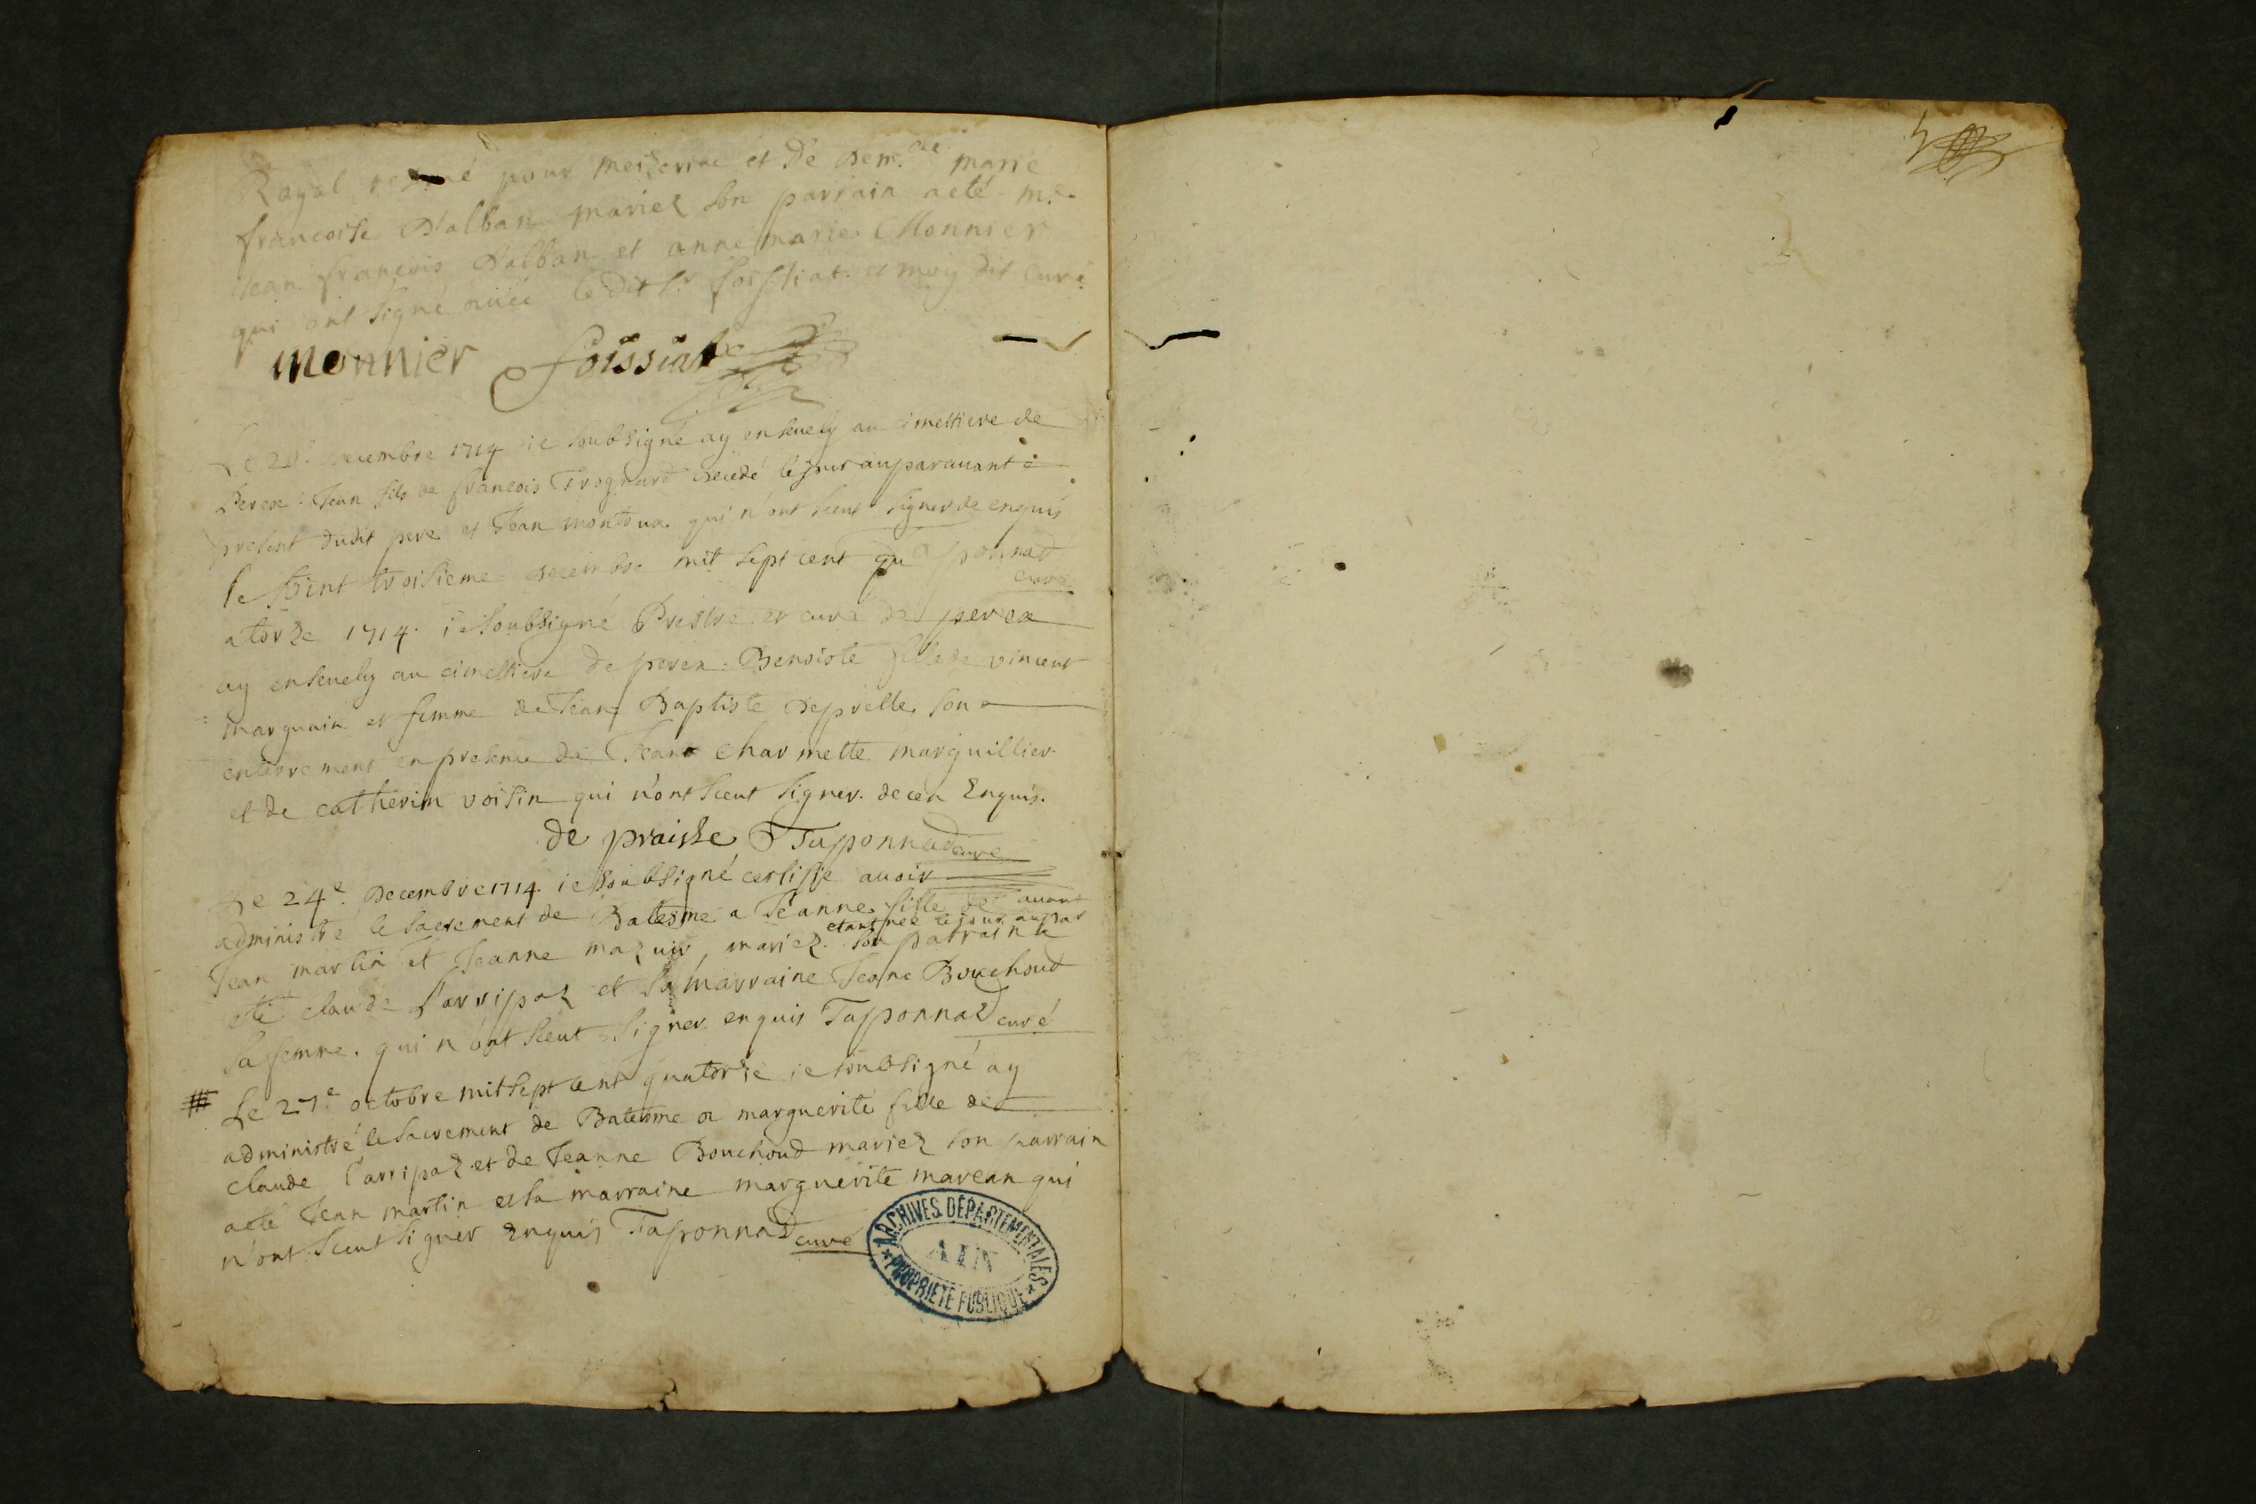 Royal pour meizeriac et de dem.elle marie
francoise D'alban mariez son parrain a eté m.r
Jean françois D'alban et anne marie Monnier
qui ont signé avec ledit s.r foissiat et moy dit curé
monnier foissiat
Le decembre 1714 ie soubsigné ay ensevely au cimettiere de
Perex Jean fils de françois Trognard decedé le jour auparauant
present dudit pere et Jean qui n'ont sceut signer de enquis
le vint troisieme decembre mil sept cent qu Taponnad
curé
atorze 1714. ie soubsigné Prestre et curé de perex
ay ensevely au cimettiere de perex Benoiste fille de vincent
marguain et femme de Jean Baptiste son
enterrement en presence de Jean Charmette marguillier
et de catherin voisin qui n'ont sceut signer. de cen Enquis.
de praisle Taponnad curé
Le 24e. Decembre 1714. ie soubsigné certiffie avoir
administré le sacrement de Batesme a Jeanne fille de
avant
etant née le jour aupar
Jean martin et Jeanne mazuir, mariez. son parrain a
eté claude Carripaz et sa marraine Jeane Bouchoud
sa femme. qui n'ont sceut signer enquis Taponnad curé
# Le 27e. octobre mil sept cent quatorze ie soubsigné ay
administré le sacrement de Batesme a marguerite fille de
claude Carripaz et de Jeanne Bouchoud mariez son parrain
a eté Jean martin et sa marraine marguerite marean qui
n'ont sceut signer Enquis Taponnad curé
ARCHIVES DÉPARTEMENTALES
AIN
PROPRIÉTÉ PUBLIQUE